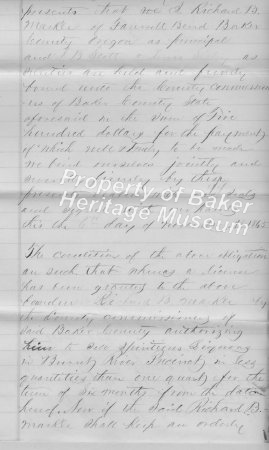 presents that we I Richard B.
of Farewell Bend Baker
County Oregon as principal
and
are held and firmly
bound unto the County Commissioners
of Baker County State
aforesaid in the sum of Five
hundred dollars for the payment
of which well & truly to be made
we bind ourselves jointly and
firmly by these
presents
and
this the 6th day of 1865
The condition of the above obligation
are such that whereas a license
has been granted to the above
bounden Richard B. by
the County commissioners of
said Baker County authorizing
him to sell Spiritous Liquors
in Burnt River Precinct in less
quantities than one quart for the
term of six months from the date
hereof. Now if the said Richard B.
shall keep an orderly
Property of Baker
Heritage Museum